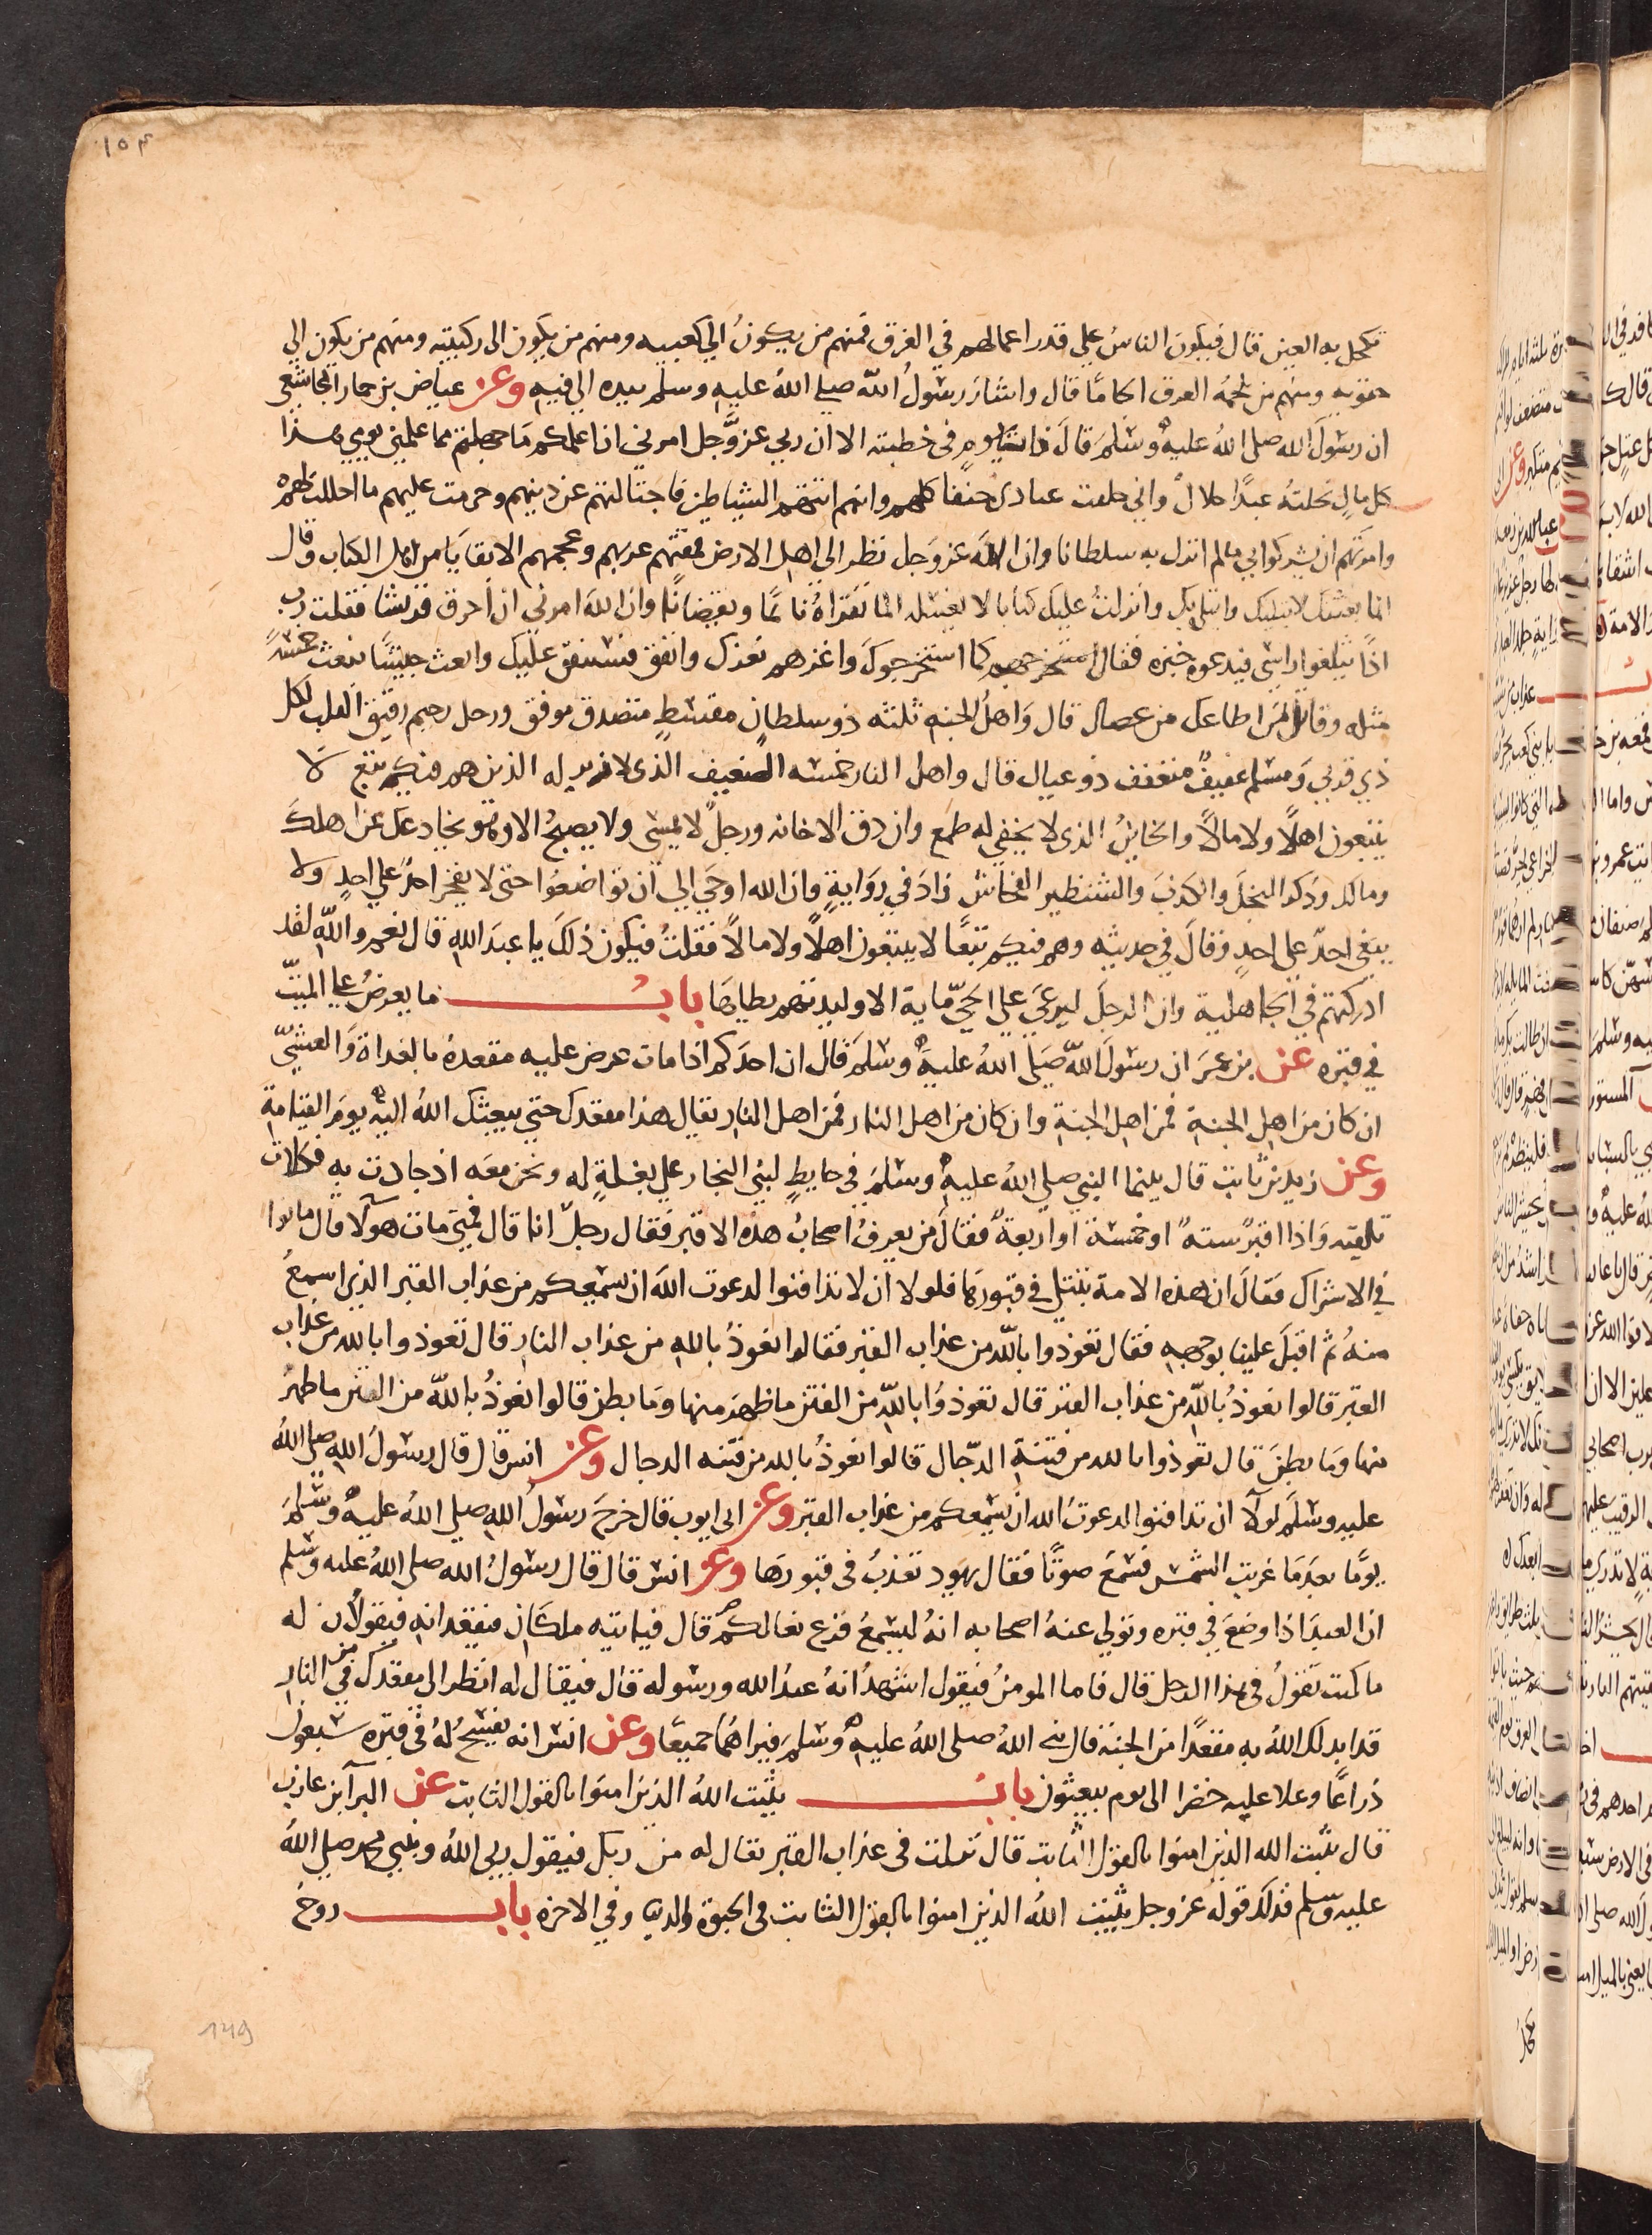 ١٥٣
تكحل به العين قال فيكون الناس على قدر اعمالهم في العرق فمنهم من يكون الى كعبيه ومنهم من يكون الى ركبتيه ومنهم من يكون الى
حقويه ومنهم من يلجمه العرق الجاما قال واشار رسول الله صلى الله عليه وسلم بيده الى فيه وعن عياض بن حمار المجاشعي
ان رسول الله صلى الله عليه وسلم قال ذات يوم في خطبته الا ان ربي عز وجل امرني ان اعلمكم ما جهلتم مما علمني يومي هذا
كل مال نحلته عبدا حلال واني خلقت عبادي حنفا كلهم وانهم اتتهم الشياطين فاجتالتهم عن دينهم وحرمت عليهم ما احللت لهم
وامرتهم ان يشركوا بي ما لم انزل به سلطانا وان الله عز وجل نظر الى اهل الارض فمقتهم عربهم وعجمهم الا بقايا من اهل الكتاب وقال
انما بعثتك لابتليك وابتلي بك وانزلت عليك كتابا لا يغسله الما تقراه نائما ويقضانا وان الله امرني ان احرق قريشا فقلت رب
اذا يثلغوا راسي فيدعوه خبزه فقال استخرجهم كما استخرجوك واغزهم نغزك وانفق فسننفق عليك وابعث جيشا نبعث خمسة
مثله وقاتل بمن اطاعك من عصاك قال واهل الجنه ثلثه ذو سلطان مقسط متصدق موفق ورجل رحيم رقيق القلب لكل
ذي قربي ومسلم عفيف متعفف ذو عيال قال واهل النار خمسه الضعيف الذي لا زبر له الذين هم فيكم تبع لا
يتبعون اهلا ولا مالا والخاين الذي لا يخفي له طمع وان دق الا خانه ورجل لا يمسى ولا يصبح الا وهو يخادعك عن اهلك
ومالك وذكر البخل والكذب والشنظير الفحاش زاد في رواية وان الله اوحي الي ان تواضعوا حتى لا يفخر احد على احد ولا
يبغي احد على احد وقال في حديثه وهم فيكم تبعا لا يبتغون اهلا ولا مالا فقلت فيكون ذلك يا عبد الله قال نعم والله لقد
ادركتهم في الجاهلية وان الرجل ليرعي على الحي ما به الا وليدتهم يطاها باب ما يعرض على الميت
في قبره عن بن عمر ان رسول الله صلى الله عليه وسلم قال ان احدكم اذا مات عرض عليه مقعده بالغداة والعشي
ان كان من اهل الجنة فمن اهل الجنة وان كان من اهل النار فمن اهل النار يقال هذا مقعدك حتي يبعثك الله اليه يوم القيامة
وعن زيد بن ثابت قال بينما النبي صلى الله عليه وسلم في حايط لبني النجار على بغلة له ونحن معه اذ حادت به فكادت
تلقيه واذا اقبر ستة او خمسة او اربعة فقال من يعرف اصحاب هذه الاقبر فقال رجل انا قال فمتي مات هولا قال ماتوا
في الاشراك فقال ان هذه الامة تبتلي في قبورها فلولا ان لا تدافنوا لدعوت الله ان يسمعكم من عذاب القبر الذي اسمع
منه ثم اقبل علينا بوجهه فقال تعوذوا بالله من عذاب القبر فقالوا نعوذ بالله من عذاب النار قال تعوذوا بالله من عذاب
القبر قالوا نعوذ بالله من عذاب القبر قال تعوذوا بالله من الفتن ما ظهر منها وما بطن قالوا نعوذ بالله من الفتن ما ظهر
منها وما بطن قال تعوذوا بالله من فتنة الدجال قالوا نعوذ بالله من فتنه الدجال وعن انس قال قال رسول الله صلى الله
عليه وسلم لولا ان تدافنوا لدعوت الله ان يسمعكم من عذاب القبر وعن ابى ايوب قال خرج رسول الله صلى الله عليه وسلم
يوما بعد ما غربت الشمس فسمع صوتا فقال يهود تعذب في قبورها وعن انس قال قال رسول الله صلى الله عليه وسلم
ان العبد اذا وضع في قبره وتولي عنه اصحابه انه ليسمع قرع نعالكم قال فياتيه ملكان فيقعدانه فيقولان له
ما كنت تقول في هذا الرجل قال فاما المومن فيقول اشهد انه عبد الله ورسوله قال فيقال له انظر الى مقعدك من النار
قد ابدلك الله به مقعدا من الجنة قال نبي الله صلى الله عليه وسلم فيراهما جميعا وعن انس انه يفسح له في قبره سبعون
ذراعا وعلا عليه خضرا الى يوم يبعثون باب يثبت الله الذين امنوا بالقول الثابت عن البرآ بن عازب
قال يثبت الله الذين امنوا بالقول الثابت قال نزلت في عذاب القبر يقال له من ربك فيقول ربي الله ونبيي محمد صلى الله
عليه وسلم فذلك قوله عز وجل يثبت الله الذين امنوا بالقول الثابت في الحيوة الدنيا وفي الاخره باب روح
149